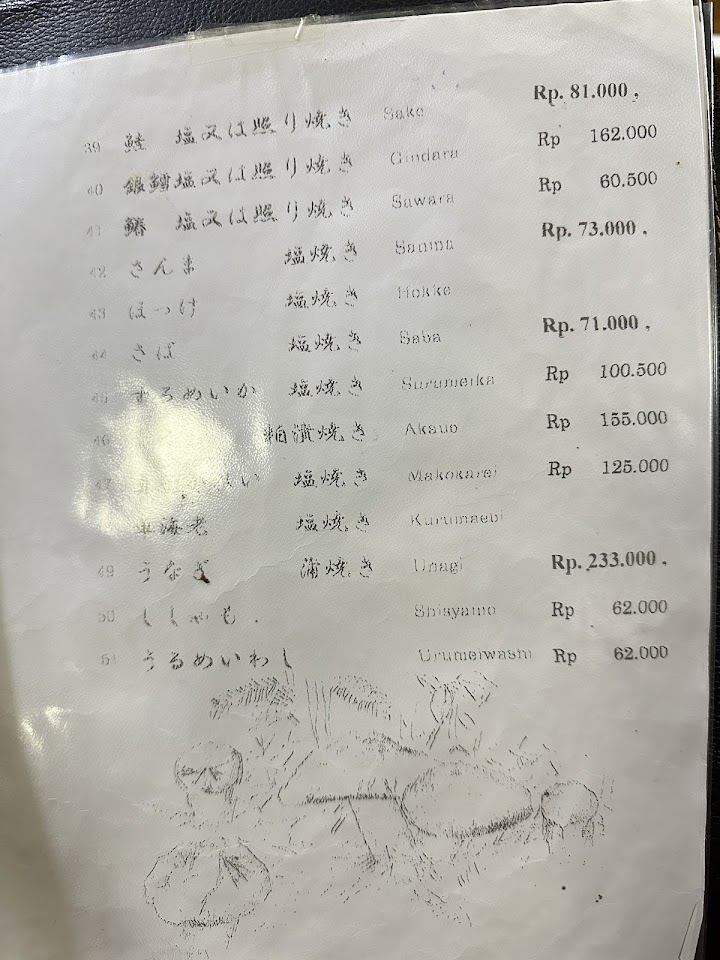 39 鮭 塩又は照り焼き Sake Rp. 81.000 ,
40 銀鱈塩又は照り焼き Gindara Rp 162.000
41 鰆 塩又は照り焼き Sawara Rp 60.500
42 さんま 塩焼き Sanma Rp. 73.000 ,
43 ほっけ 塩焼き Hokke
44 さば 塩焼き Saba Rp. 71.000 ,
45 するめいか 塩焼き Surumeika Rp 100.500
46 粕漬焼き Akauo Rp 155.000
47 塩焼き Makokarei Rp 125.000
車海老 塩焼き Kurumaebi
49 うなぎ 蒲焼き Unagi Rp. 233.000 ,
50 ししゃも . Shisyamo Rp 62.000
51 うるめいわし Urumeiwashi Rp 62.000